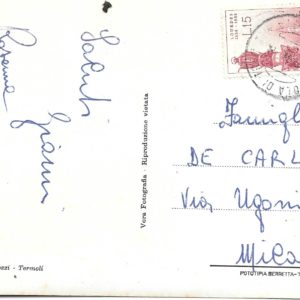 Saluti
Rosanna
Gianni
Vera Fotografia - Riproduzione vietata
ezzi - Termoli
LOURDES
1858 - 1958
L.15
Famigl
DE CARL
Via Ugoni
Mila
FOTOTIPIA BERRETTA-T